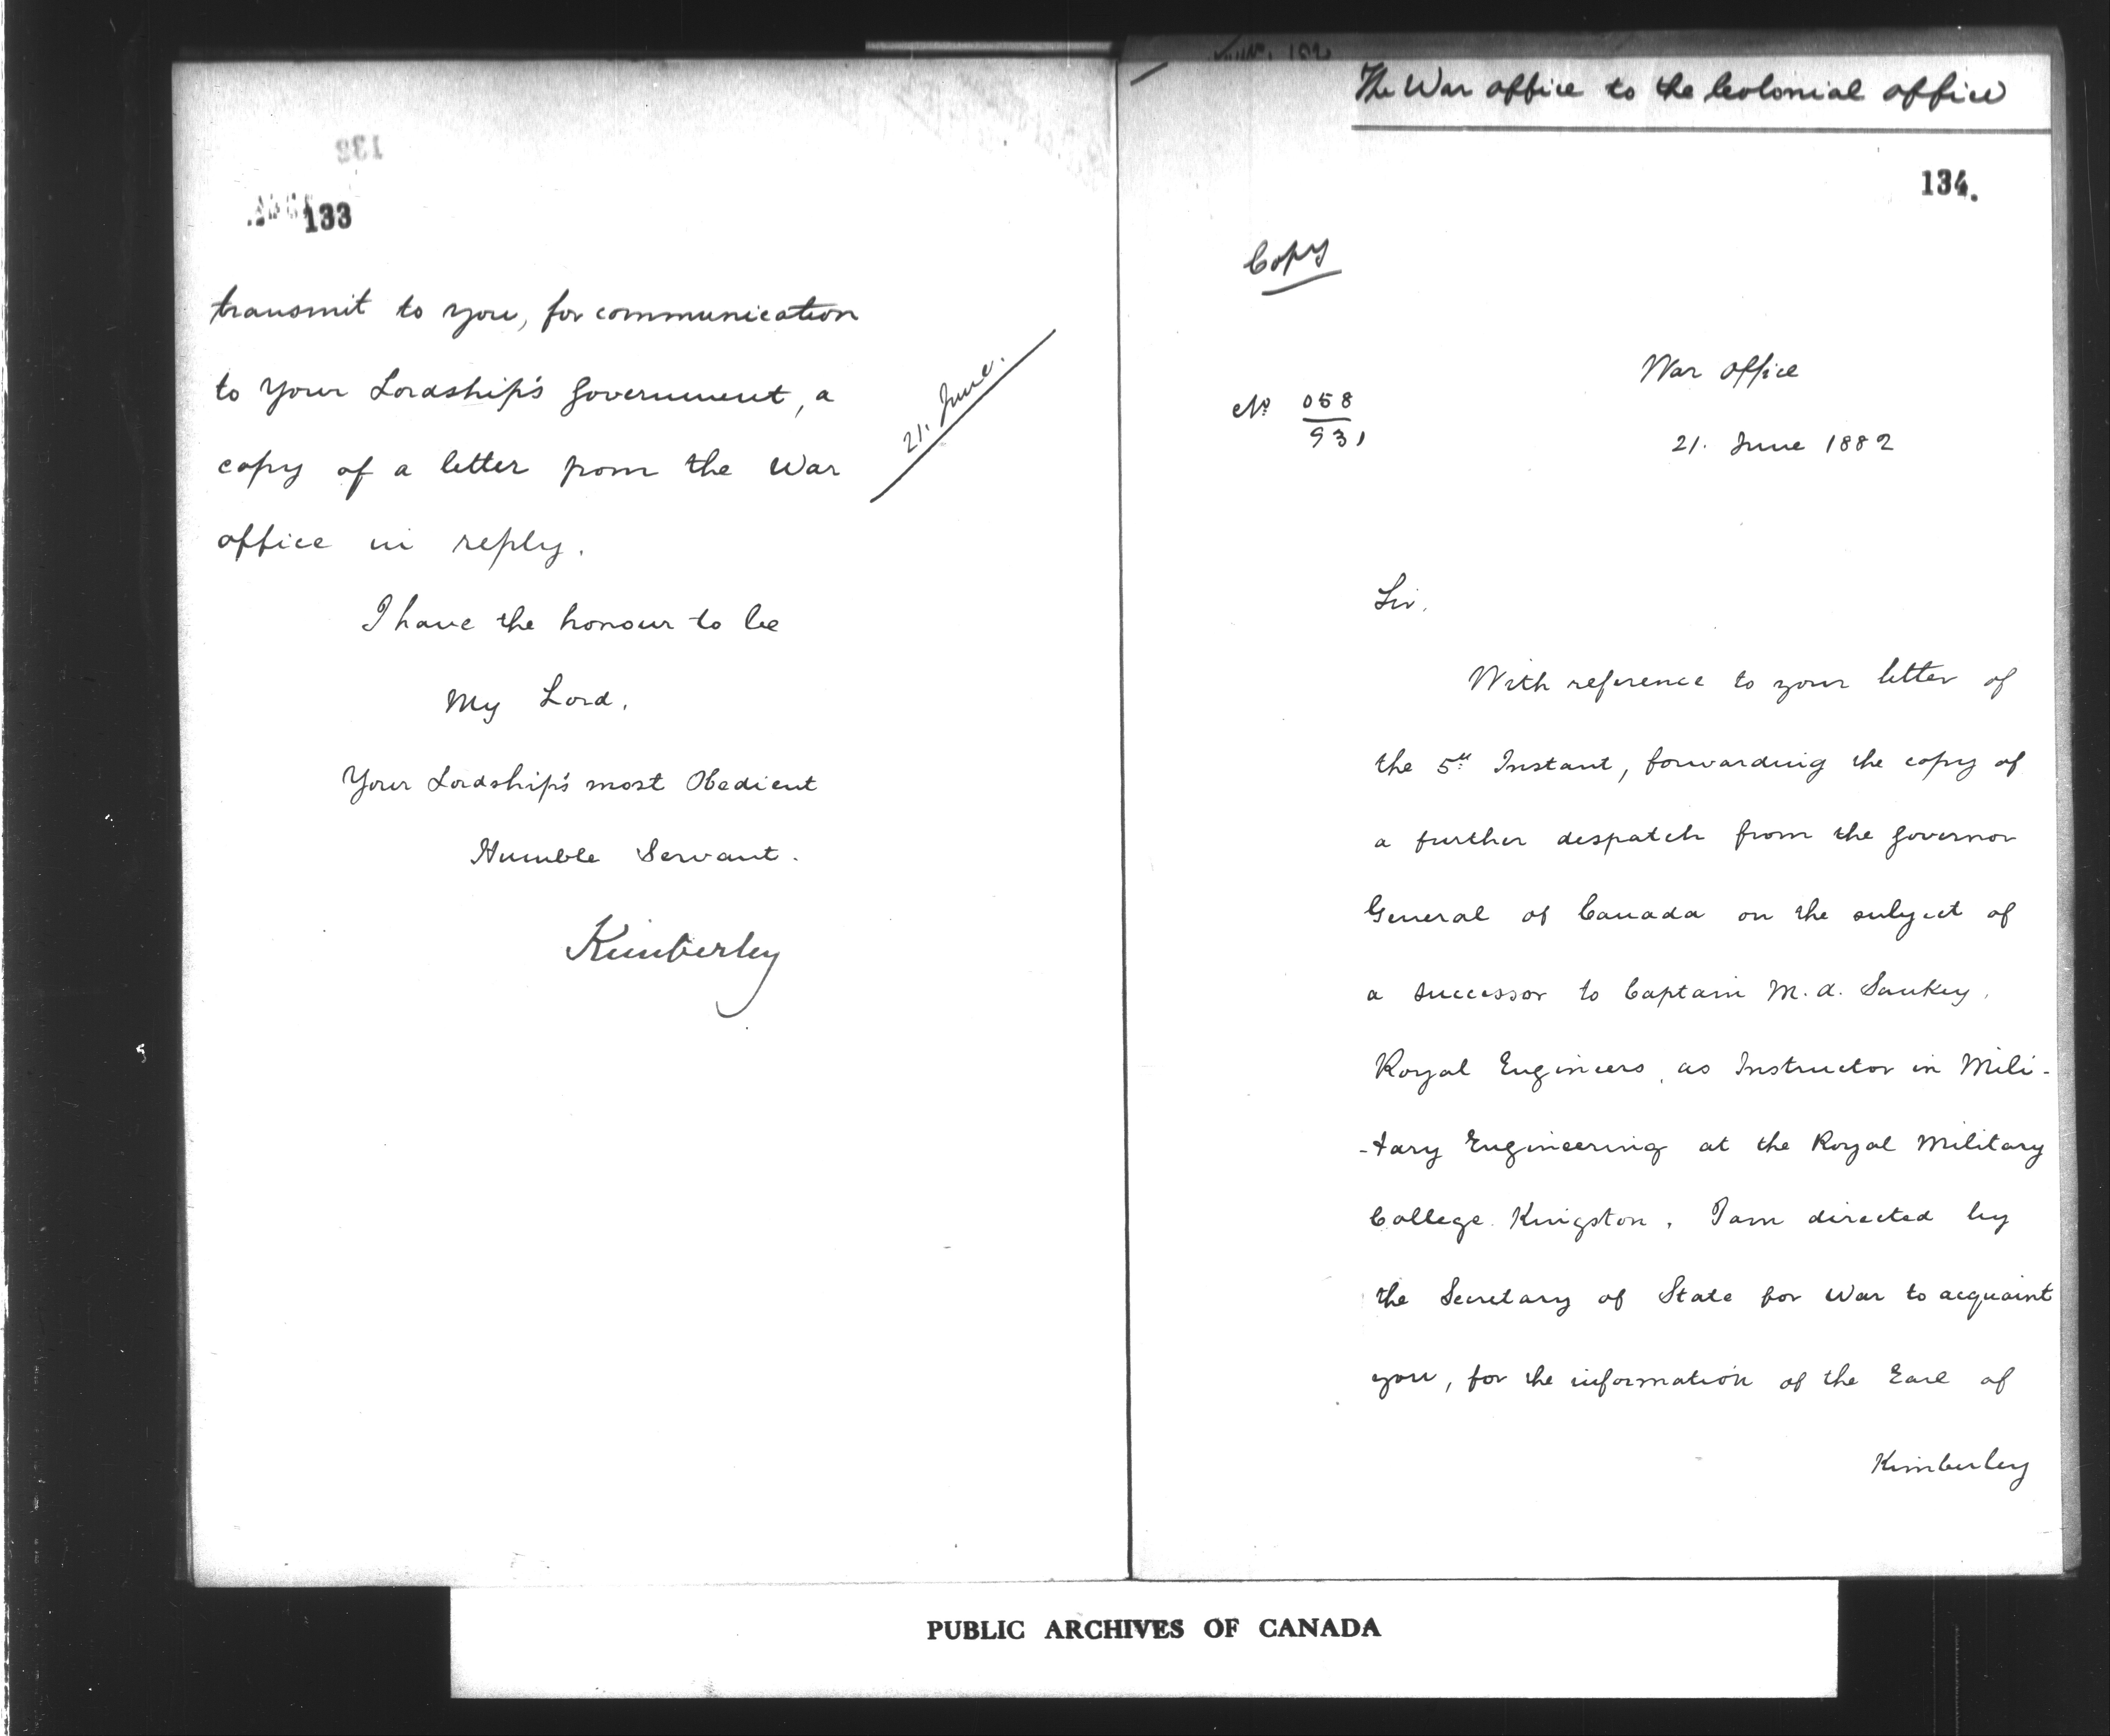 133
transmit to you, for communication
to Your Lordship's Government, a
copy of a letter from the War
21. June.
office in reply.
I have the honour to be
My Lord,
Your Lordship's most Obedient
Humble Servant.
Kimberley
The War Office to the Colonial Office
134.
Copy
War Office
No 058
931
21. June 1882
Sir,
With reference to your letter of
the 5th Instant, forwarding the copy of
a further despatch from the Governor
General of Canada on the subject of
a successor to Captain M. A. Sankey,
Royal Engineers, as Instructor in Mili-
-tary Engineering at the Royal Military
College Kingston, I am directed by
the Secretary of State for War to acquaint
you, for the information of the Earl of
Kimberley
PUBLIC ARCHIVES OF CANADA